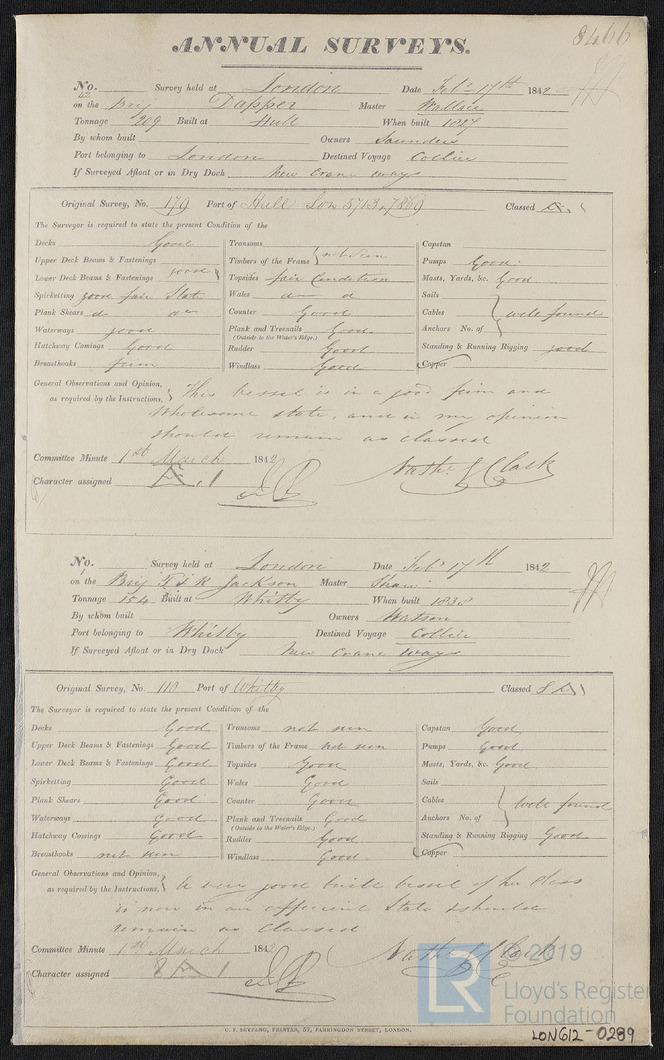 8466
ANNUAL SURVEYS.
No. 42 Survey held at London Date Feb. 17th 1842
on the Brig Dapper Master Wallace
Tonnage 209 Built at Hull When built 1827
By whom built Owners Saunders
Port belonging to London Destined Voyage Collier
If Surveyed Afloat or in Dry Dock New Crane ways
Original Survey, No. 179 Port of Hull Lon 5713, 7869 Classed Æ 1
The Surveyor is required to state the present Condition of the
Decks Good Transoms Capstan
Upper Deck Beams & Fastenings Timbers of the Frame } not seen Pumps Good
Lower Deck Beams & Fastenings good } Topsides fair Condition Masts, Yards, &c. Good
Spirketting good fair State Wales do do Sails
Plank Shears do do Counter Good Cables } well found
Waterways good Plank and Treenails Good Anchors No. of
(Outside to the Water's Edge.)
Hatchway Comings Good Rudder Good Standing & Running Rigging good
Breasthooks firm Windlass Good Copper
General Observations and Opinion, as required by the Instructions, } This vessel is in a good firm and
wholesome state, and in my opinion
should remain as classed
Committee Minute 1st March 1842 Nathl. G Clark
Character assigned Æ 1
No. 1 Survey held at London Date Feb. 17th 1842
on the Brig T & R Jackson Master Shaw
Tonnage 154 Built at Whitby When built 1838
By whom built Owners Watson
Port belonging to Whitby Destined Voyage Collier
If Surveyed Afloat or in Dry Dock New Crane ways
Original Survey, No. 110 Port of Whitby Classed 8 A 1
The Surveyor is required to state the present Condition of the
Decks Good Transoms not seen Capstan Good
Upper Deck Beams & Fastenings Good Timbers of the Frame not seen Pumps Good
Lower Deck Beams & Fastenings Good Topsides Good Masts, Yards, &c. Good
Spirketting Good Wales Good Sails
Plank Shears Good Counter Good Cables } well found
Waterways Good Plank and Treenails Good Anchors No. of
(Outside to the Water's Edge.)
Hatchway Comings Good Rudder Good Standing & Running Rigging Good
Breasthooks not seen Windlass Good Copper
General Observations and Opinion, as required by the Instructions, } A very good built vessel of her class
is now in an efficient State & should
remain as Classed
Committee Minute 1st March 1842 Nathl. G Clark
Character assigned 8 A 1
C. F. SEYFANG, PRINTER, 57, FARRINGDON STREET, LONDON.
LR © 2019
Lloyd's Register
Foundation
LON612-0289